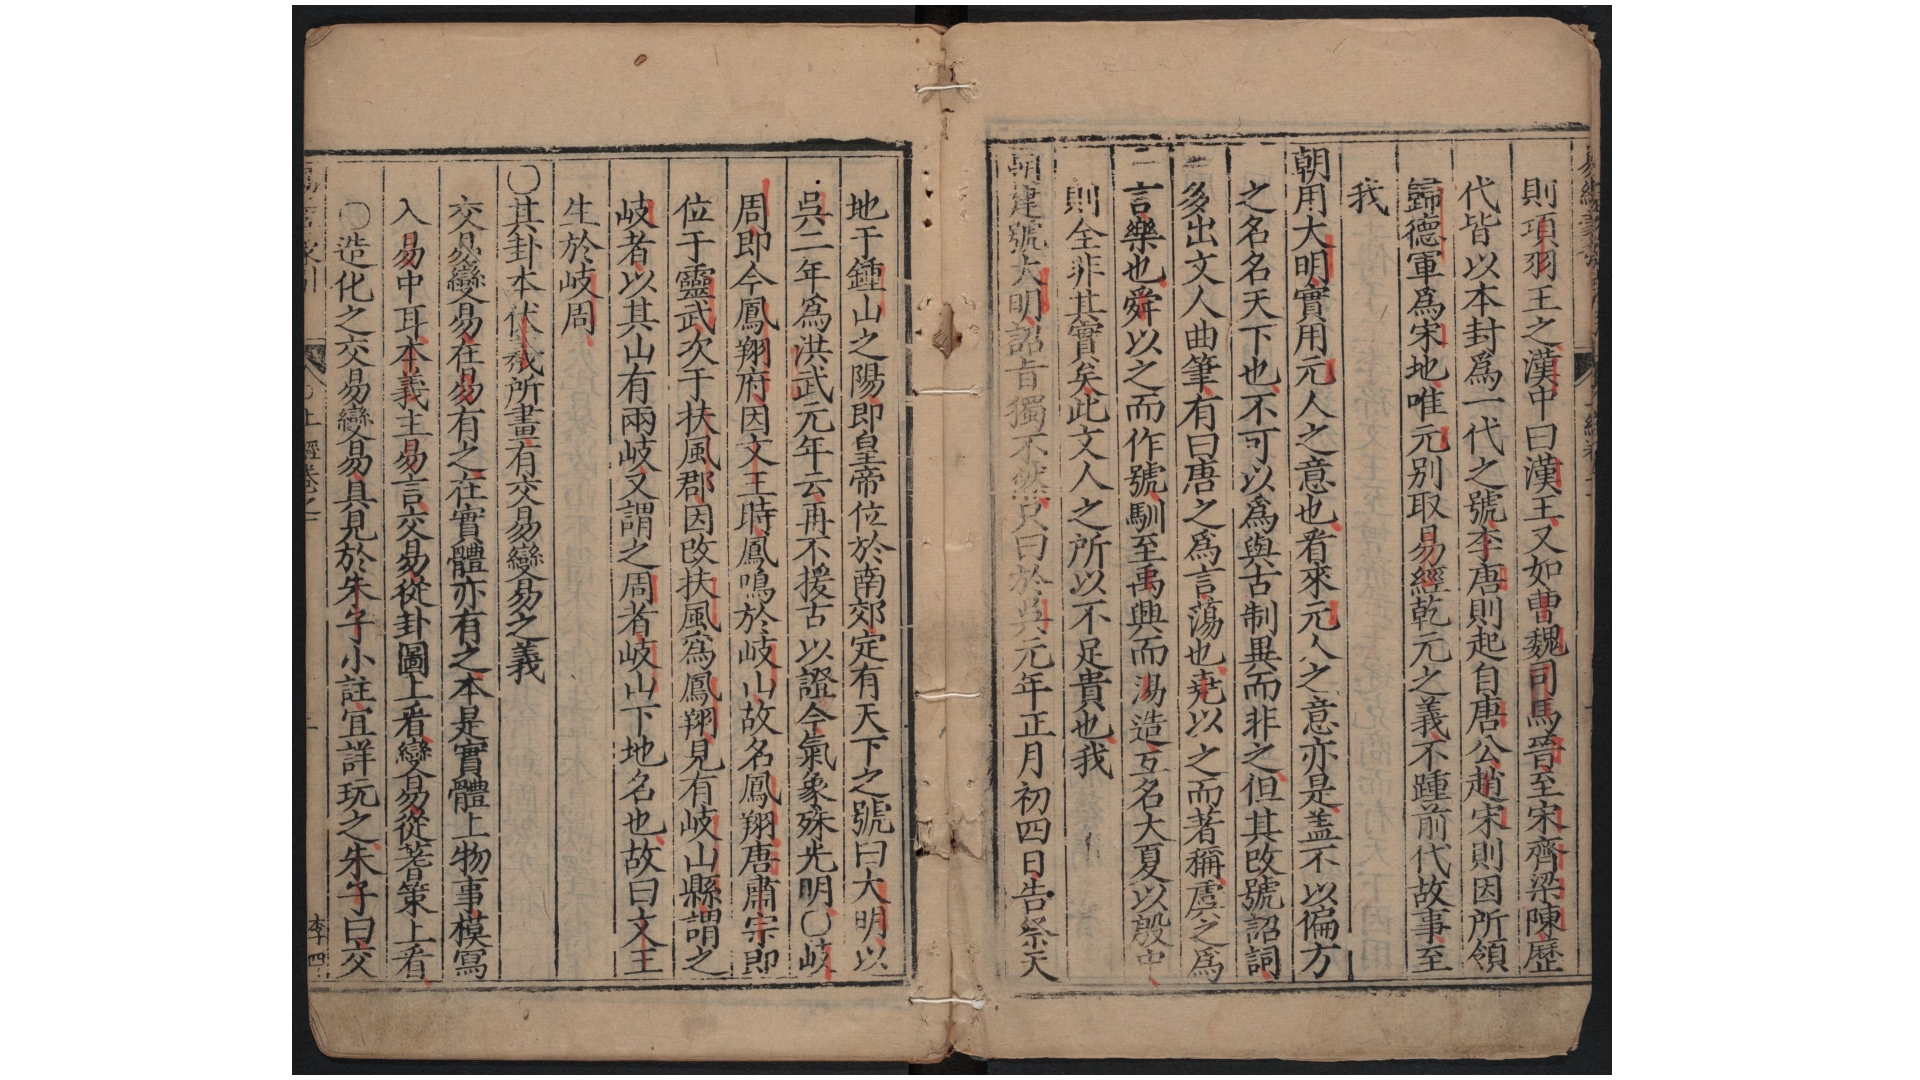 則項羽王之漢中曰漢王又如曹魏司馬晉至宋齊梁陳歷
代皆以本封爲一代之號李唐則起自唐公趙宋則因所領
歸德軍爲宋地唯元别取易經乾元之義不踵前代故事至
我
朝用大明實用元人之意也看來元人之意亦是蓋不以偏方
之名名天下也不可以爲與古制異而非之但其改號詔詞
多出文人曲筆有曰唐之爲言蕩也堯以之而著稱虞之爲
言樂也舜以之而作號馴至禹興而湯造互名大夏以殷中
則全非其實矣此文人之所以不足貴也我
朝建號大明詔旨獨不然只曰於吳元年正月初四日告祭天
地于鍾山之陽即皇帝位於南郊定有天下之號曰大明以
吳二年爲洪武元年云再不援古以證今氣象殊光明〇岐
周即今鳳翔府因文王時鳳鳴於岐山故名鳳翔唐肅宗即
位于靈武次于扶風郡因改扶風爲鳳翔見有岐山縣謂之
岐者以其山有兩岐又謂之周者岐山下地名也故曰文王
生於岐周
〇其卦本伏羲所畫有交易變易之義
交易變易在易有之在實體亦有之本是實體上物事模寫
入易中耳本義主易言交易從卦圖上看變易從蓍策上看
〇造化之交易變易具見於朱子小註宜詳玩之朱子曰交
上經卷之一
李四